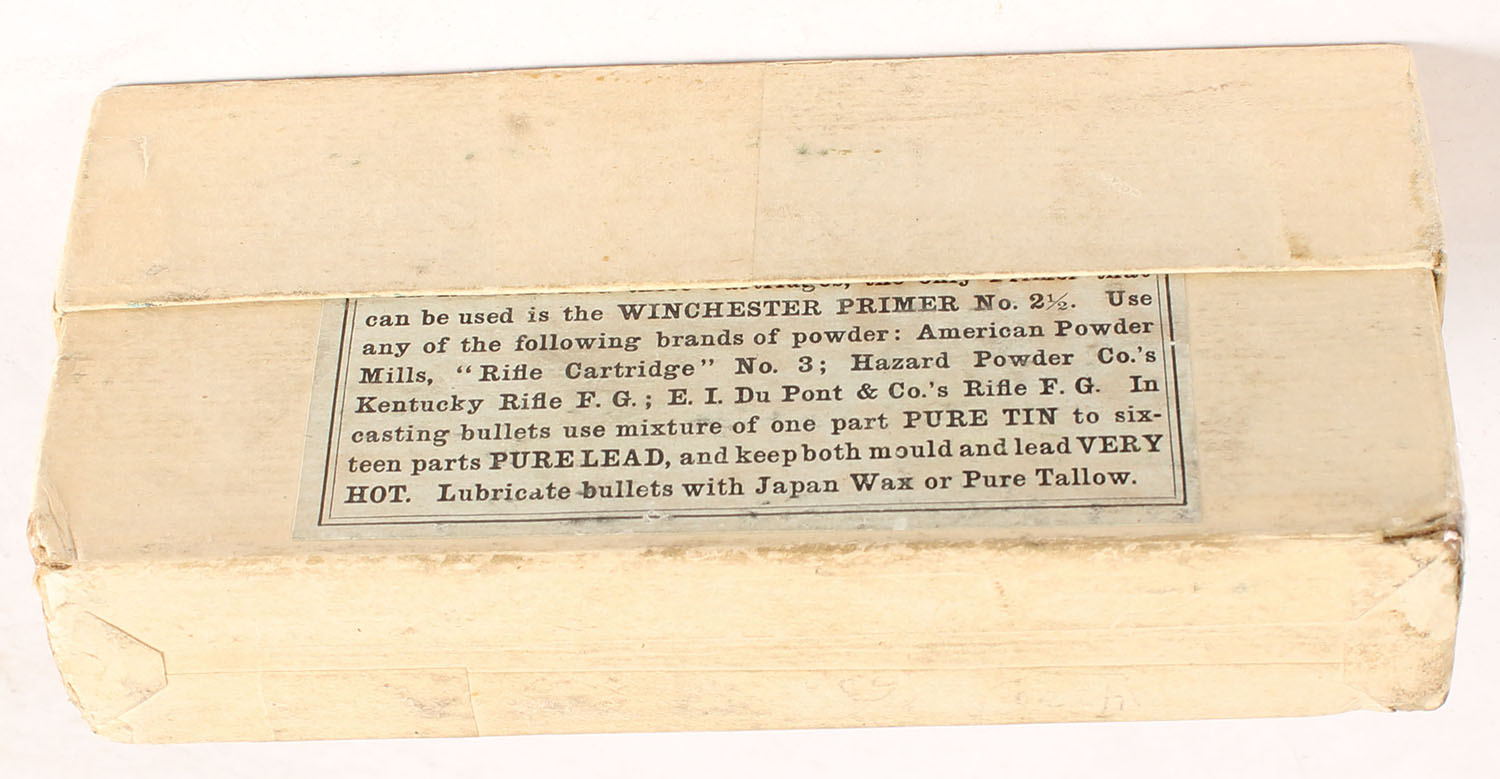 these cartridges, the only Primer that
can be used is the WINCHESTER PRIMER No. 2½. Use
any of the following brands of powder: American Powder
Mills, “Rifle Cartridge” No. 3; Hazard Powder Co.’s
Kentucky Rifle F. G.; E. I. Du Pont & Co.’s Rifle F. G. In
casting bullets use mixture of one part PURE TIN to six-
teen parts PURE LEAD, and keep both mould and lead VERY
HOT. Lubricate bullets with Japan Wax or Pure Tallow.